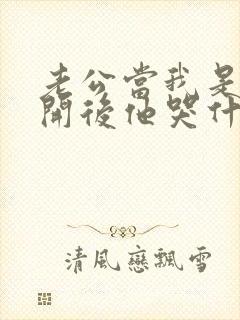 老公當我是
開後他哭什
清風戀飄雪